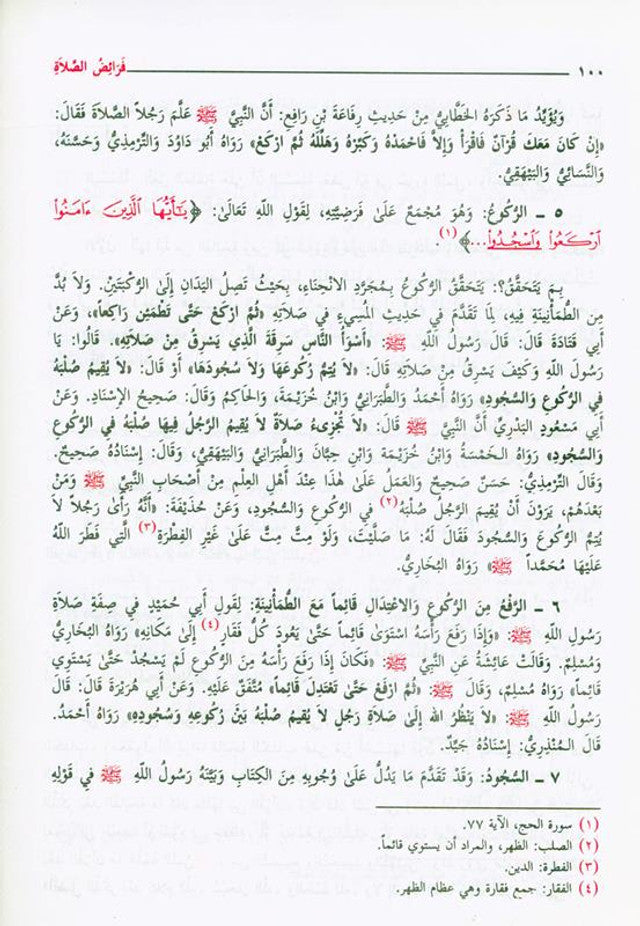 ١٠٠ فَرَائِضُ الصَّلاَةِ
وَيُؤَيِّدُ مَا ذَكَرَهُ الخَطَّابِيُّ مِنْ حَدِيثِ رِفَاعَةَ بْنِ رَافِعٍ: أَنَّ النَّبِيَّ ﷺ عَلَّمَ رَجُلاً الصَّلاَةَ فَقَالَ:
«إِنْ كَانَ مَعَكَ قُرْآنٌ فَاقْرَأْ وَإِلاَّ فَاحْمَدْهُ وَكَبِّرْهُ وَهَلِّلْهُ ثُمَّ ارْكَعْ» رَوَاهُ أَبُو دَاوُدَ وَالتِّرْمِذِيُّ وَحَسَّنَهُ،
وَالنَّسَائِيُّ وَالبَيْهَقِيُّ.
٥ ـ الرُّكُوعُ: وَهُوَ مُجْمَعٌ عَلَىٰ فَرَضِيَّتِهِ، لِقَوْلِ اللَّهِ تَعَالَىٰ: ﴿يَـٰٓأَيُّهَا ٱلَّذِينَ ءَامَنُوا۟
ٱرْكَعُوا۟ وَٱسْجُدُوا۟...﴾(١).
بِمَ يَتَحَقَّقُ؟: يَتَحَقَّقُ الرُّكُوعُ بِمُجَرَّدِ الانْحِنَاءِ، بِحَيْثُ تَصِلُ اليَدَانِ إِلَىٰ الرُّكْبَتَيْنِ. وَلاَ بُدَّ
مِنَ الطُّمَأْنِينَةِ فِيهِ، لِمَا تَقَدَّمَ فِي حَدِيثِ المُسِيءِ فِي صَلاَتِهِ «ثُمَّ ارْكَعْ حَتَّى تَطْمَئِنَّ رَاكِعاً»، وَعَنْ
أَبِي قَتَادَةَ قَالَ: قَالَ رَسُولُ اللَّهِ ﷺ: «أَسْوَأُ النَّاسِ سَرِقَةً الَّذِي يَسْرِقُ مِنْ صَلاَتِهِ». قَالُوا: يَا
رَسُولَ اللَّهِ وَكَيْفَ يَسْرِقُ مِنْ صَلاَتِهِ قَالَ: «لاَ يُتِمُّ رُكُوعَهَا وَلاَ سُجُودَهَا» أَوْ قَالَ: «لاَ يُقِيمُ صُلْبَهُ
فِي الرُّكُوعِ وَالسُّجُودِ» رَوَاهُ أَحْمَدُ وَالطَّبَرَانِيُّ وَابْنُ خُزَيْمَةَ، وَالحَاكِمُ وَقَالَ: صَحِيحُ الإِسْنَادِ. وَعَنْ
أَبِي مَسْعُودٍ البَدْرِيِّ أَنَّ النَّبِيَّ ﷺ قَالَ: «لاَ تُجْزِىءُ صَلاَةٌ لاَ يُقِيمُ الرَّجُلُ فِيهَا صُلْبَهُ فِي الرُّكُوعِ
وَالسُّجُودِ» رَوَاهُ الخَمْسَةُ وَابْنُ خُزَيْمَةَ وَابْنُ حِبَّانَ وَالطَّبَرَانِيُّ وَالبَيْهَقِيُّ، وَقَالَ: إِسْنَادُهُ صَحِيحٌ.
وَقَالَ التِّرْمِذِيُّ: حَسَنٌ صَحِيحٌ وَالعَمَلُ عَلَىٰ هٰذَا عِنْدَ أَهْلِ العِلْمِ مِنْ أَصْحَابِ النَّبِيِّ ﷺ وَمَنْ
بَعْدَهُمْ، يَرَوْنَ أَنْ يُقِيمَ الرَّجُلُ صُلْبَهُ(٢) فِي الرُّكُوعِ وَالسُّجُودِ، وَعَنْ حُذَيْفَةَ: «أَنَّهُ رَأَىٰ رَجُلاً لاَ
يُتِمُّ الرُّكُوعَ وَالسُّجُودَ فَقَالَ لَهُ: مَا صَلَّيْتَ، وَلَوْ مِتَّ مِتَّ عَلَىٰ غَيْرِ الفِطْرَةِ(٣) الَّتِي فَطَرَ اللَّهُ
عَلَيْهَا مُحَمَّداً ﷺ» رَوَاهُ البُخَارِيُّ.
٦ ـ الرَّفْعُ مِنَ الرُّكُوعِ وَالاعْتِدَالِ قَائِماً مَعَ الطُّمَأْنِينَةِ: لِقَوْلِ أَبِي حُمَيْدٍ فِي صِفَةِ صَلاَةِ
رَسُولِ اللَّهِ ﷺ: «وَإِذَا رَفَعَ رَأْسَهُ اسْتَوَىٰ قَائِماً حَتَّىٰ يَعُودَ كُلُّ فَقَارٍ(٤) إِلَىٰ مَكَانِهِ» رَوَاهُ البُخَارِيُّ
وَمُسْلِمٌ. وَقَالَتْ عَائِشَةُ عَنِ النَّبِيِّ ﷺ: «فَكَانَ إِذَا رَفَعَ رَأْسَهُ مِنَ الرُّكُوعِ لَمْ يَسْجُدْ حَتَّىٰ يَسْتَوِيَ
قَائِماً» رَوَاهُ مُسْلِمٌ، وَقَالَ ﷺ: «ثُمَّ ارْفَعْ حَتَّىٰ تَعْتَدِلَ قَائِماً» مُتَّفَقٌ عَلَيْهِ. وَعَنْ أَبِي هُرَيْرَةَ قَالَ: قَالَ
رَسُولُ اللَّهِ ﷺ: «لاَ يَنْظُرُ اللَّهُ إِلَىٰ صَلاَةِ رَجُلٍ لاَ يُقِيمُ صُلْبَهُ بَيْنَ رُكُوعِهِ وَسُجُودِهِ» رَوَاهُ أَحْمَدُ.
قَالَ المُنْذِرِيُّ: إِسْنَادُهُ جَيِّدٌ.
٧ ـ السُّجُودُ: وَقَدْ تَقَدَّمَ مَا يَدُلُّ عَلَىٰ وُجُوبِهِ مِنَ الكِتَابِ وَبَيَّنَهُ رَسُولُ اللَّهِ ﷺ فِي قَوْلِهِ
(١) سورة الحج، الآية ٧٧.
(٢) الصلب: الظهر، والمراد أن يستوي قائماً.
(٣) الفطرة: الدين.
(٤) الفقار: جمع فقارة وهي عظام الظهر.